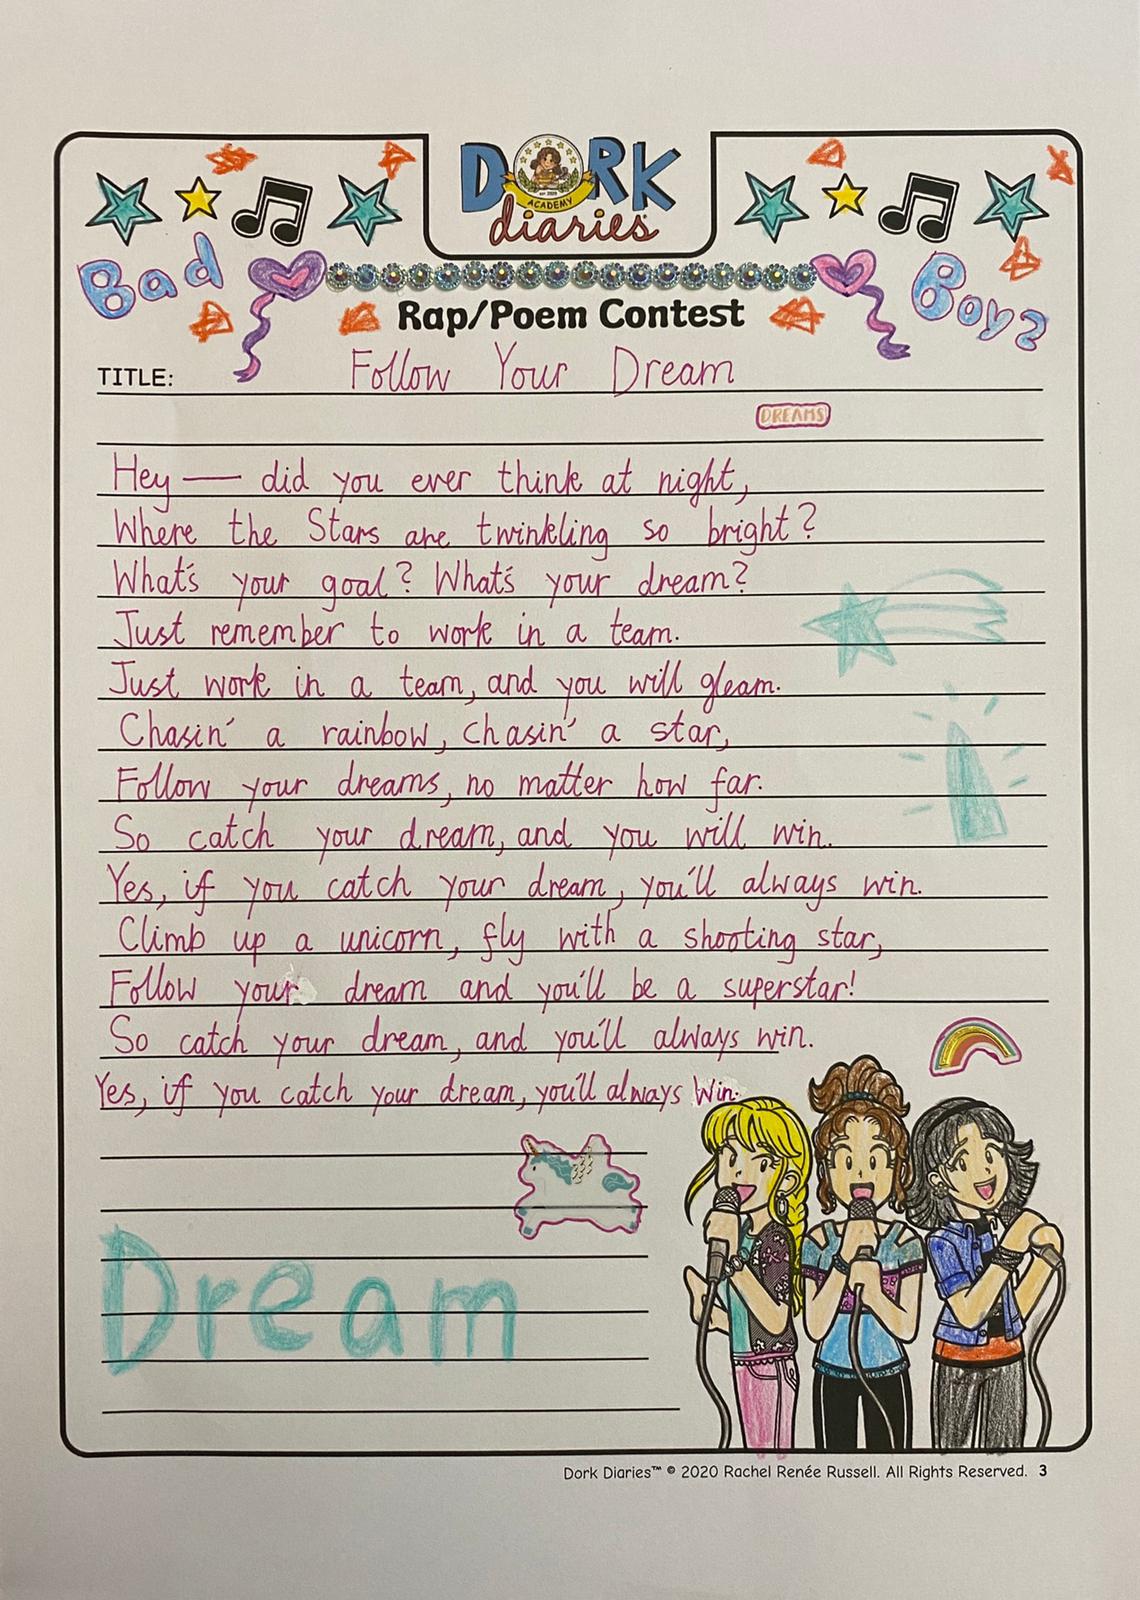 DORK
EST. 2020
ACADEMY
diaries
Bad Boyz
Rap/Poem Contest
TITLE: Follow Your Dream
DREAMS
Hey — did you ever think at night,
Where the Stars are twinkling so bright?
What's your goal? What's your dream?
Just remember to work in a team.
Just work in a team, and you will gleam.
Chasin' a rainbow, chasin' a star,
Follow your dreams, no matter how far.
So catch your dream, and you will win.
Yes, if you catch your dream, you'll always win.
Climb up a unicorn, fly with a shooting star,
Follow your dream and you'll be a superstar!
So catch your dream, and you'll always win.
Yes, if you catch your dream, you'll always Win.
Dream
Dork Diaries™ © 2020 Rachel Renée Russell. All Rights Reserved. 3